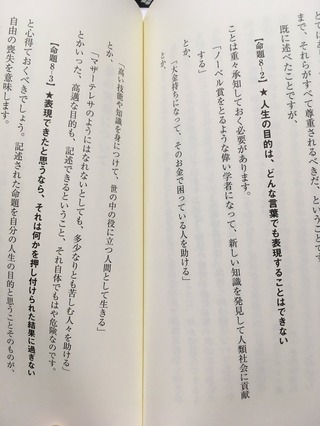 まで、それらがすべて尊重されるべきだ、ということ
既に述べたことですが、
【命題8-2】★人生の目的は、どんな言葉でも表現することはできない
ことは重々承知しておく必要があります。
「ノーベル賞をとるような偉い学者になって、新しい知識を発見して人類社会に貢献
する」
とか、
「大金持ちになって、そのお金で困っている人を助ける」
とか、
「高い技能や知識を身につけて、世の中の役に立つ人間として生きる」
とか、
「マザーテレサのようにはなれないとしても、多少なりとも苦しむ人々を助ける」
とかいった、高邁な目的も、記述できるということ、それ自体でもはや危険なのです。
【命題8-3】★表現できたと思うなら、それは何かを押し付けられた結果に過ぎない
と心得ておくべきでしょう。記述された命題を自分の人生の目的と思うことそのものが、
自由の喪失を意味します。